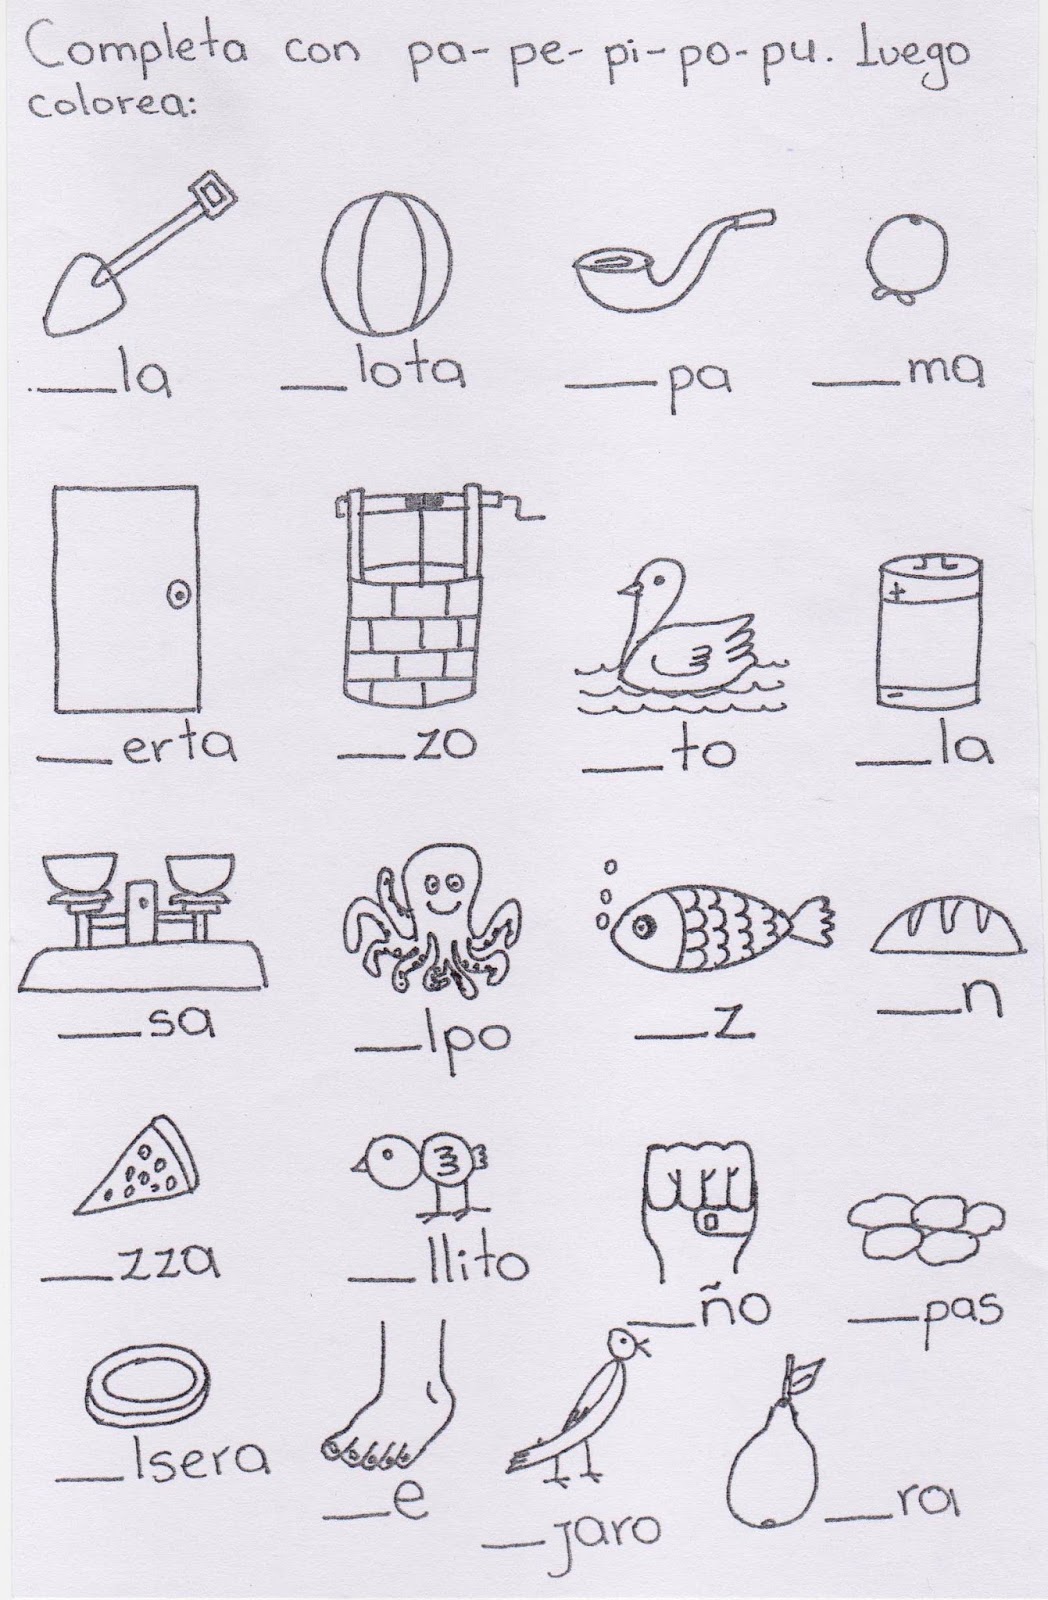 Completa con pa-pe-pi-po-pu. Luego
colorea:
___la __lota ___pa ___ma
___erta ___zo ___to ___la
___sa __lpo ___z ___n
___zza ___llito ___ño ___pas
___lsera ___e __jaro ___ra
+
-